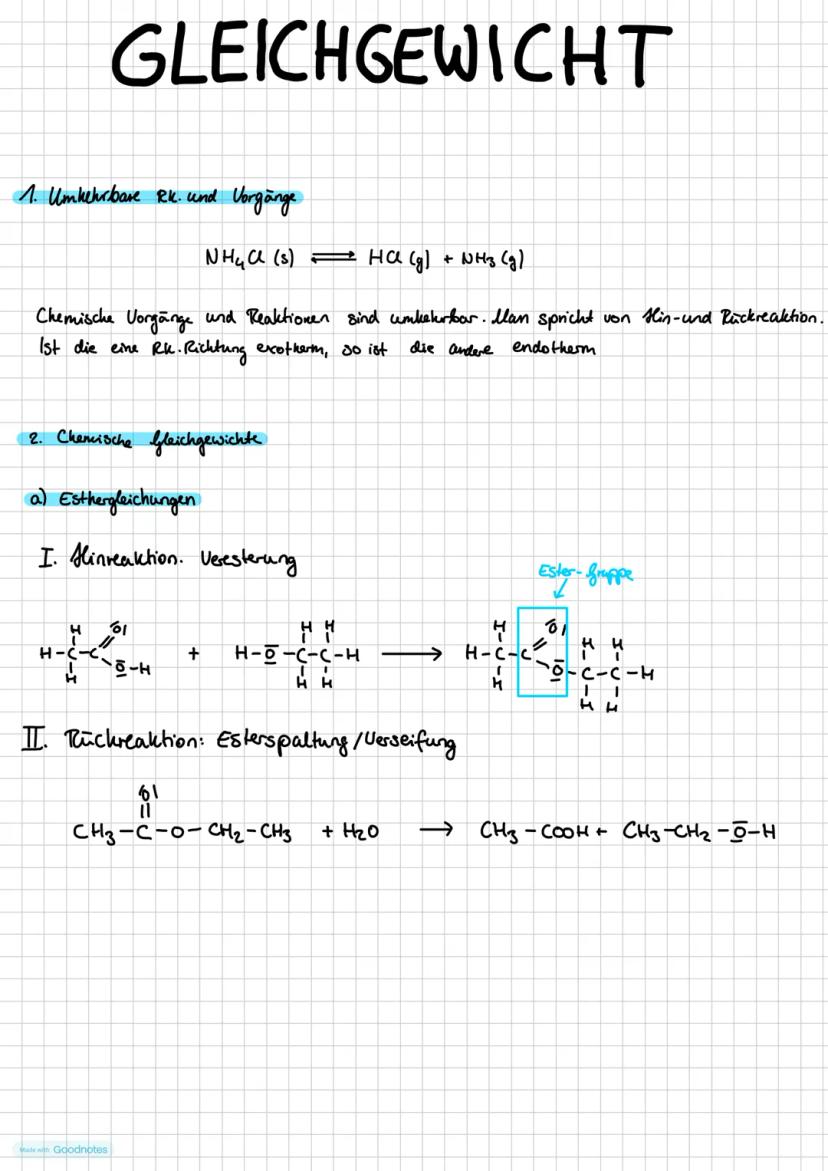 GLEICHGEWICHT
1. Umkehrbare Rk. und Vorgänge
NH4Cl (s) ⇌ HCl (g) + NH3 (g)
Chemische Vorgänge und Reaktionen sind umkehrbar. Man spricht von Hin-und Rückreaktion.
Ist die eine Rk. Richtung exotherm, so ist die andere endotherm
2. Chemische Gleichgewichte
a) Esthergleichungen
I. Hinreaktion. Veresterung
Ester-Gruppe
H H H H O|
H-C-C + H-O-C-C-H → H-C-C H H
O-H O-C-C-H
H H H H H H
II. Rückreaktion: Esterspaltung/Verseifung
O|
||
CH3-C-O-CH2-CH3 + H2O → CH3-COOH + CH3-CH2-O-H
Made with Goodnotes